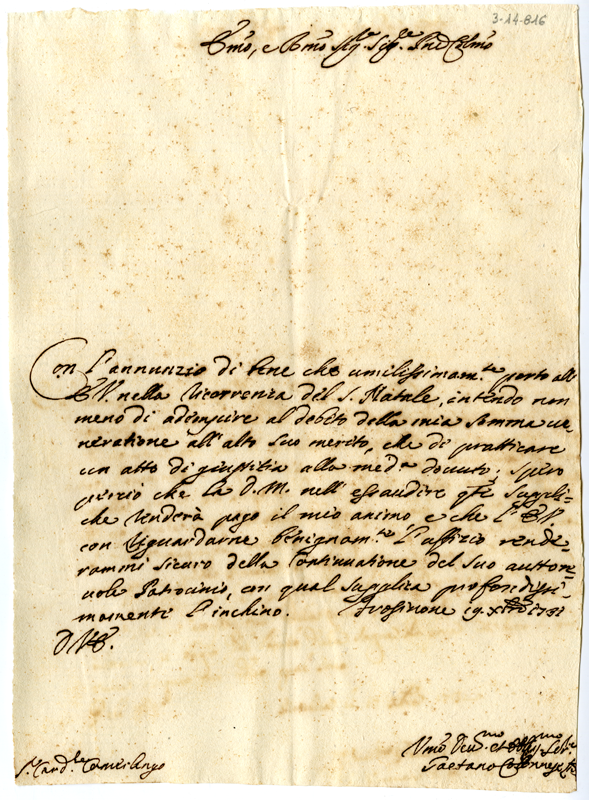 3-14-816
Emo, e Rmo Sig.re Sig.re Pne Colmo
Con l'annunzio di bene che umilissimam.te porto all'
E.V. nella ricorrenza del S. Natale, intendo non
meno di adempire al debito della mia somma ve-
neratione all'alto suo merito, che di pratticare
un atto di giustitia alla med.a dovuto; spero
perciò che la D.M. nell'essaudire qste suppli-
che renderà pago il mio animo, e che l'E.V.
con riguardarne benignam.te l'uffizio rende-
rammi sicuro della Continuatione del suo autore-
vole Patrocinio, con qual supplica profondissi-
mamente l'inchino. Frosinone 19. Xbre 1731
D.V.E.
S.r Card.le Camerlengo
Umo Devmo et Obmo Serv.e
Gaetano